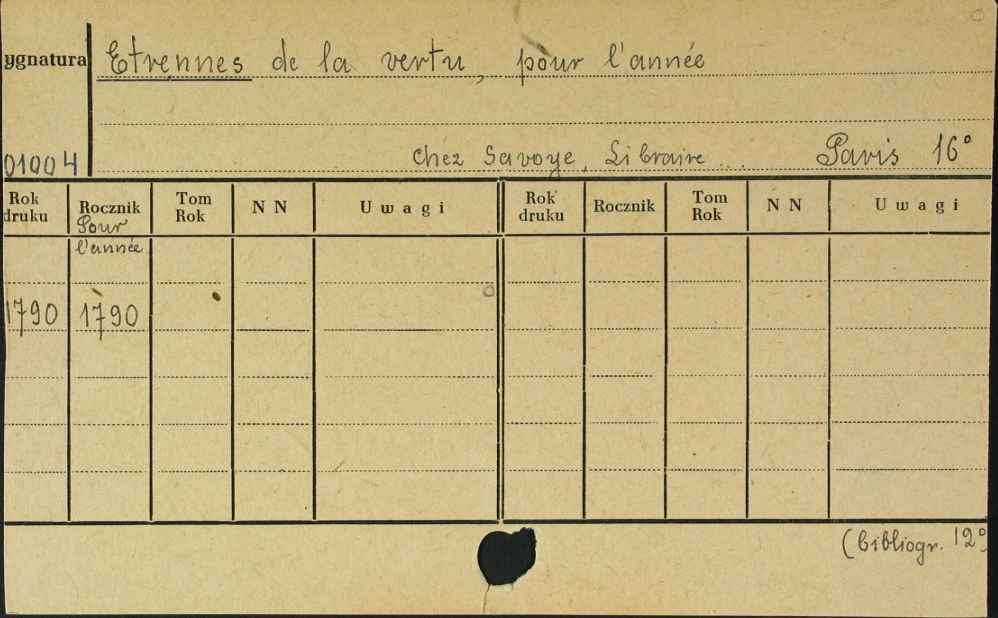 ygnatura Etrennes de la vertu, pour l'année
01004 chez Savoye, Libraire ... Paris 16°
Rok druku Rocznik Tom Rok N N Uwagi Rok druku Rocznik Tom Rok N N Uwagi
Pour
l'année
1790 1790
(bibliogr. 12°